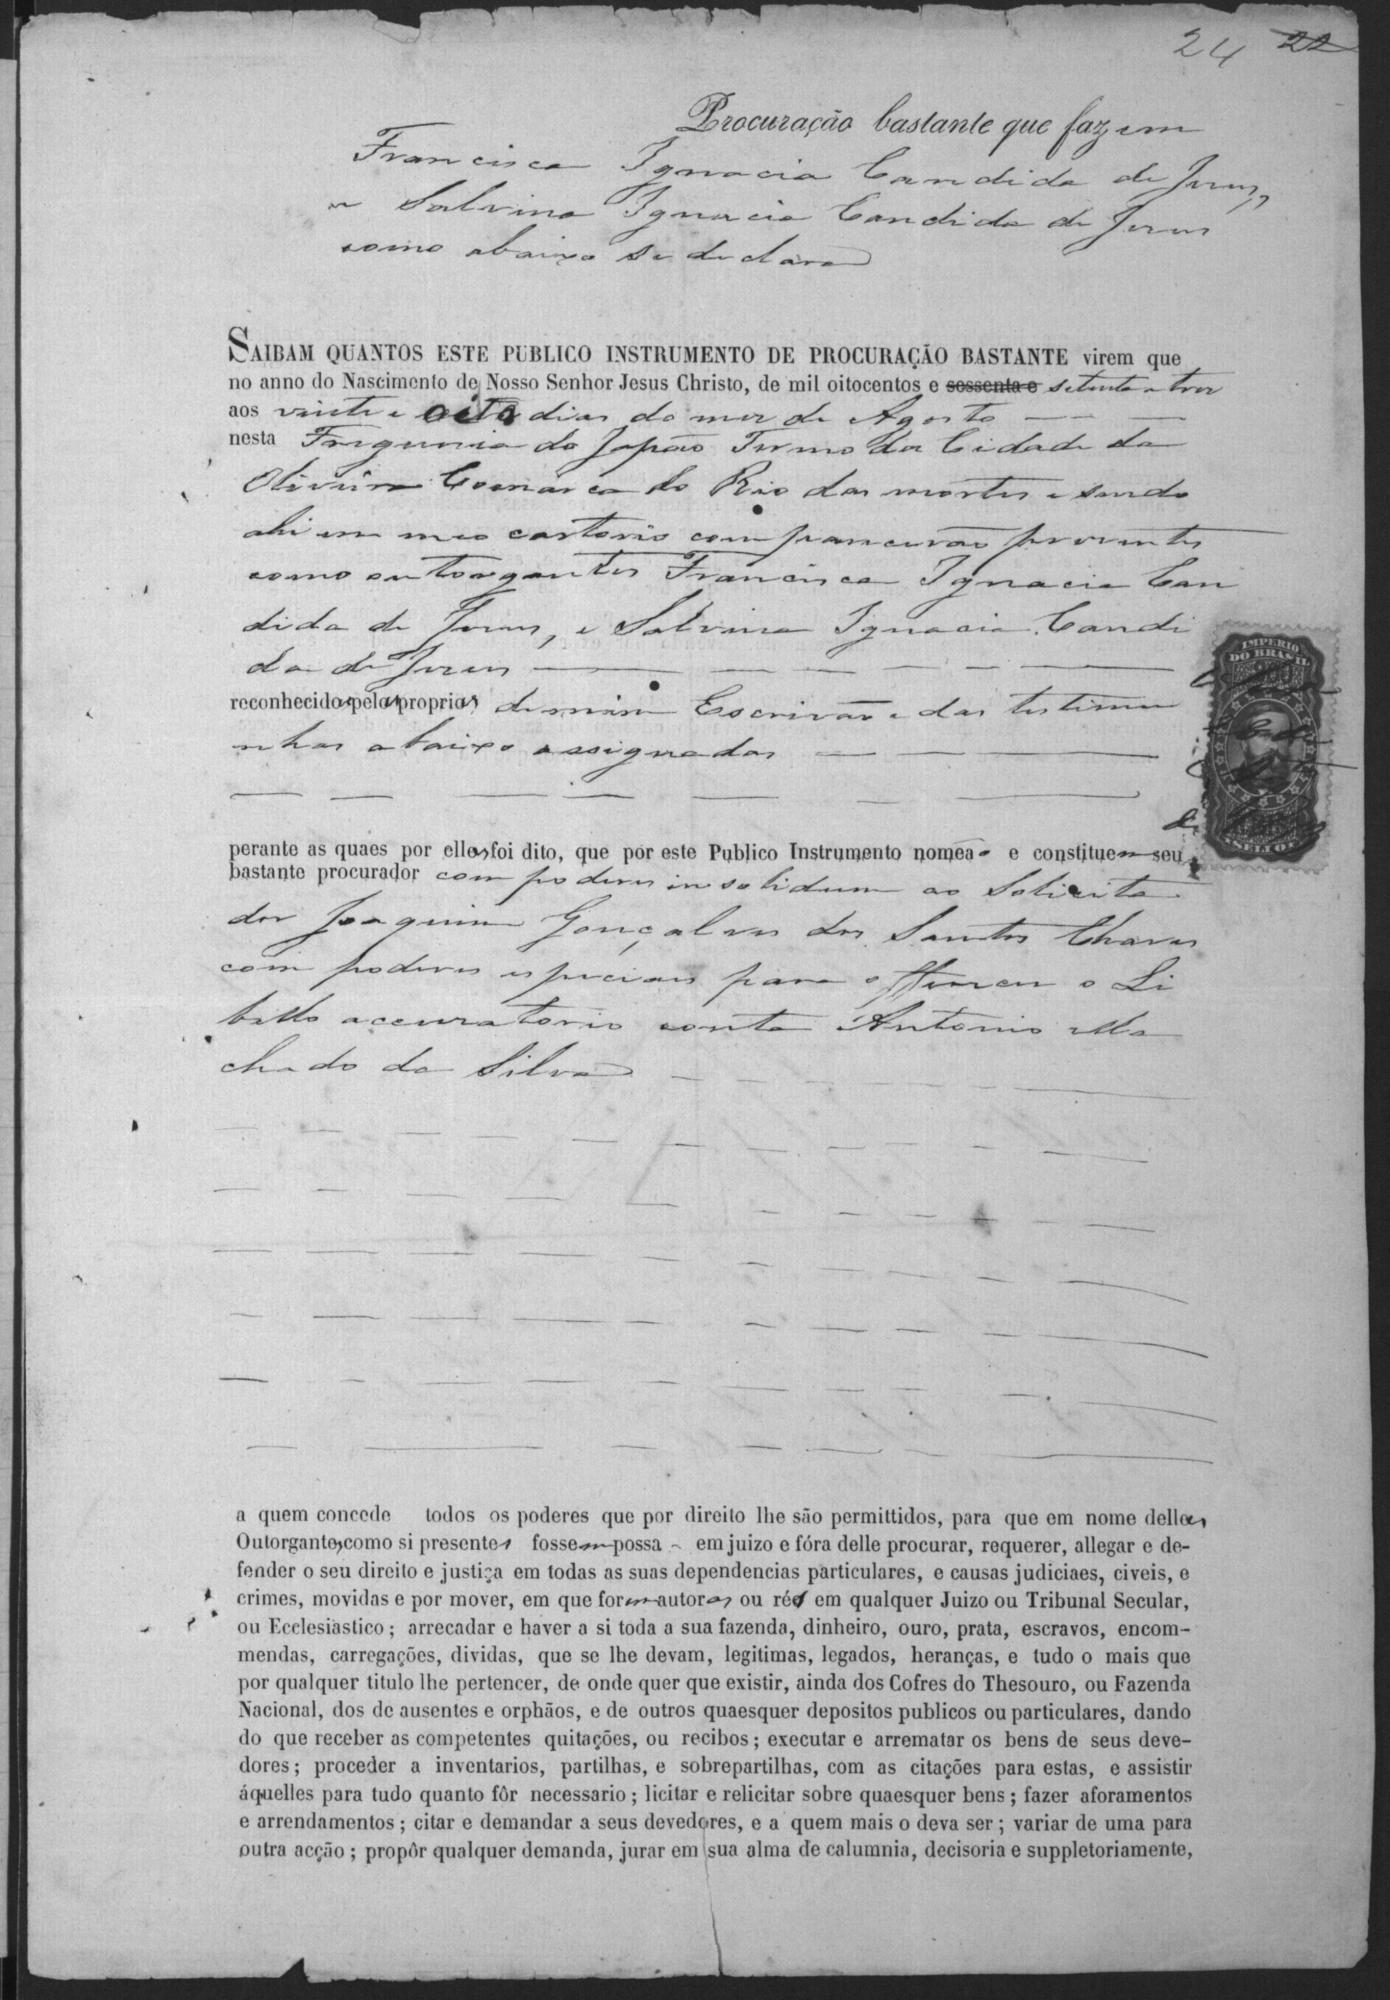 24 22
Procuração bastante que fazem
Francisca Ignacia Candida de Jesus,
e Salvina Ignacia Candida de Jesus
como abaixo se declara
SAIBAM QUANTOS ESTE PUBLICO INSTRUMENTO DE PROCURAÇÃO BASTANTE virem que
no anno do Nascimento de Nosso Senhor Jesus Christo, de mil oitocentos e sessenta e setenta e tres
aos vinte e oito dias do mez de Agosto
nesta Freguesia do Japão Termo da Cidade da
Oliveira Comarca do Rio das mortes e sendo
ahi em meo cartorio comparecerão presentes
como outorgantes Francisca Ignacia Can
dida de Jesus, e Salvina Ignacia Candi
da de Jesus
reconhecidas pelas proprias de mim Escrivão e das testimu
nhas abaixo assignadas
perante as quaes por ellas foi dito, que por este Publico Instrumento nomêa e constituem seu
bastante procurador com poderes insolidum ao Solicita
dor Joaquim Gonçalves dos Santos Chaves
com poderes especiais para offerecer o Li
bello accusatorio contra Antonio Ma
chado da Silva
IMPERIO
DO BRASIL
a quem concede todos os poderes que por direito lhe são permittidos, para que em nome dellas
Outorgantes, como si presentes fossem possa em juizo e fóra delle procurar, requerer, allegar e de-
fender o seu direito e justiça em todas as suas dependencias particulares, e causas judiciaes, civeis, e
crimes, movidas e por mover, em que forem autoras ou rés em qualquer Juizo ou Tribunal Secular,
ou Ecclesiastico; arrecadar e haver a si toda a sua fazenda, dinheiro, ouro, prata, escravos, encom-
mendas, carregações, dividas, que se lhe devam, legitimas, legados, heranças, e tudo o mais que
por qualquer titulo lhe pertencer, de onde quer que existir, ainda dos Cofres do Thesouro, ou Fazenda
Nacional, dos de ausentes e orphãos, e de outros quaesquer depositos publicos ou particulares, dando
do que receber as competentes quitações, ou recibos; executar e arrematar os bens de seus deve-
dores; proceder a inventarios, partilhas, e sobrepartilhas, com as citações para estas, e assistir
áquelles para tudo quanto fôr necessario; licitar e relicitar sobre quaesquer bens; fazer aforamentos
e arrendamentos; citar e demandar a seus devedores, e a quem mais o deva ser; variar de uma para
outra acção; propôr qualquer demanda, jurar em sua alma de calumnia, decisoria e suppletoriamente,